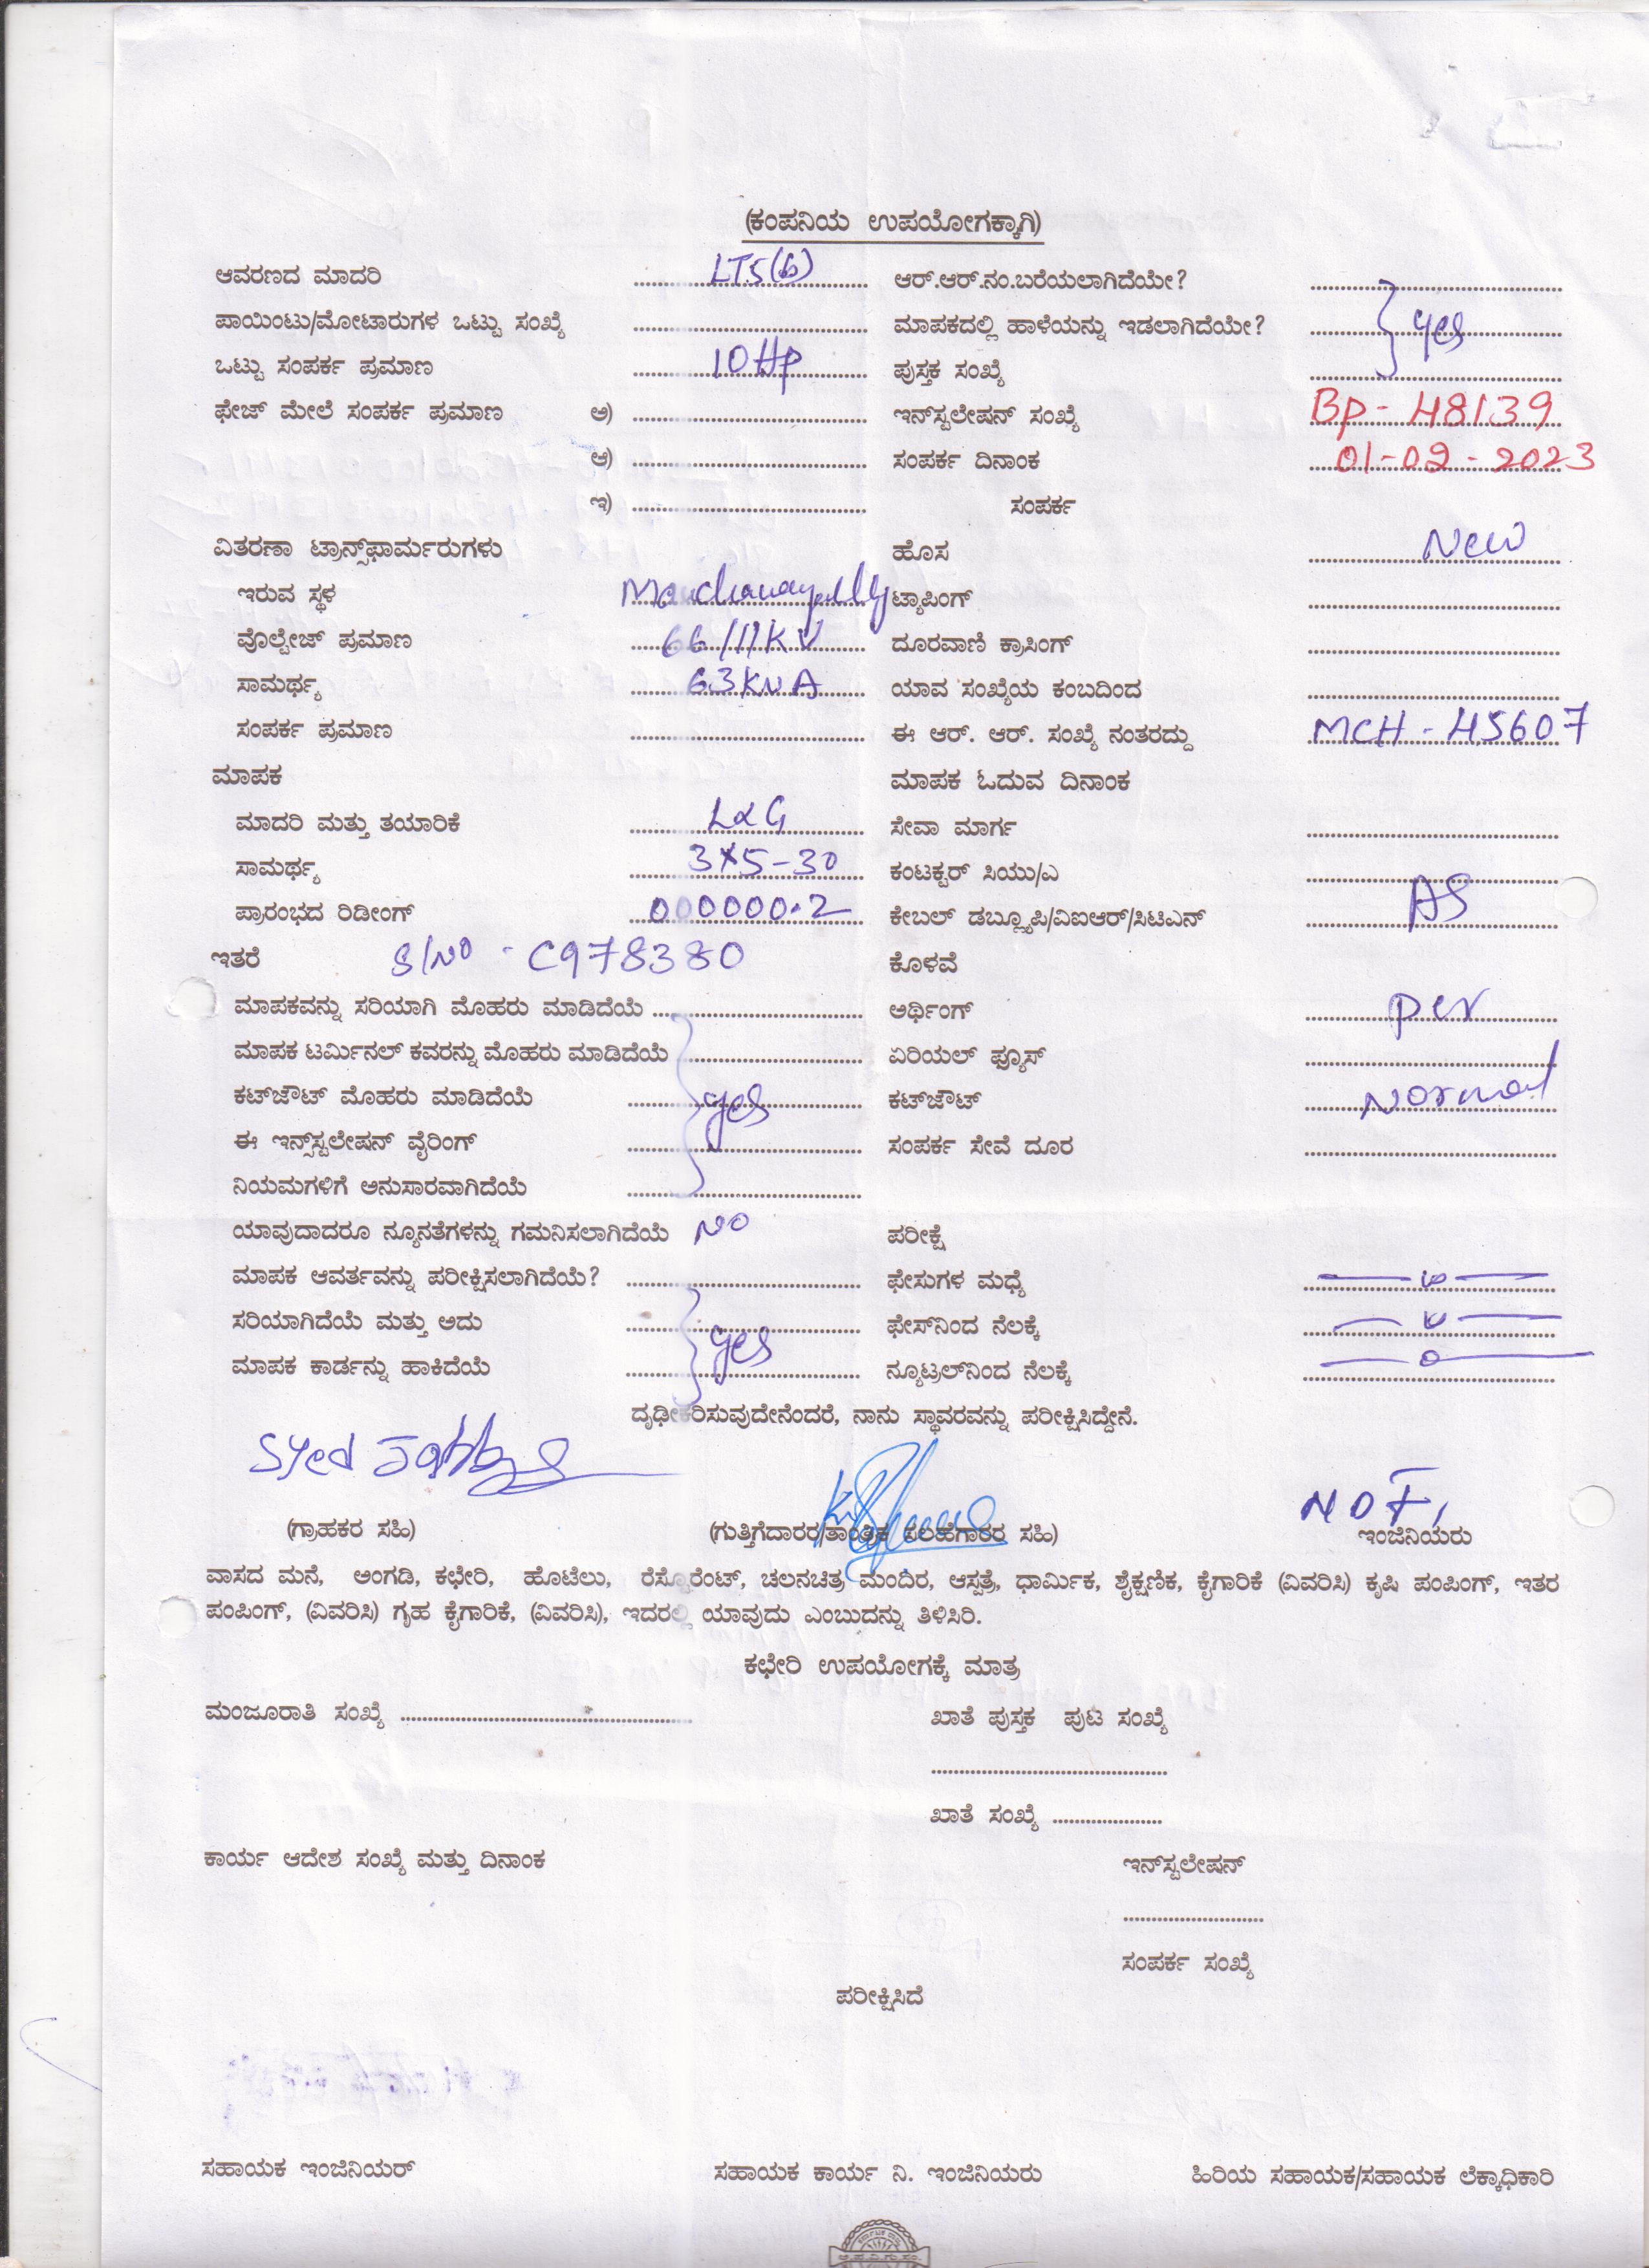 (ಕಂಪನಿಯ ಉಪಯೋಗಕ್ಕಾಗಿ)
ಆವರಣದ ಮಾದರಿ LT5(b) ಆರ್.ಆರ್.ನಂ.ಬರೆಯಲಾಗಿದೆಯೇ?
ಪಾಯಿಂಟು/ಮೋಟಾರುಗಳ ಒಟ್ಟು ಸಂಖ್ಯೆ ಮಾಪಕದಲ್ಲಿ ಹಾಳೆಯನ್ನು ಇಡಲಾಗಿದೆಯೇ? yes
ಒಟ್ಟು ಸಂಪರ್ಕ ಪ್ರಮಾಣ 10HP ಪುಸ್ತಕ ಸಂಖ್ಯೆ
ಫೇಜ್ ಮೇಲೆ ಸಂಪರ್ಕ ಪ್ರಮಾಣ ಅ) ಇನ್‌ಸ್ಟಲೇಷನ್ ಸಂಖ್ಯೆ BP-48139
ಆ) ಸಂಪರ್ಕ ದಿನಾಂಕ 01-02-2023
ಇ) ಸಂಪರ್ಕ
ವಿತರಣಾ ಟ್ರಾನ್ಸ್‌ಫಾರ್ಮರುಗಳು ಹೊಸ New
ಇರುವ ಸ್ಥಳ ಟ್ಯಾಪಿಂಗ್
ವೊಲ್ಟೇಜ್ ಪ್ರಮಾಣ 66/11KV ದೂರವಾಣಿ ಕ್ರಾಸಿಂಗ್
ಸಾಮರ್ಥ್ಯ 63KVA ಯಾವ ಸಂಖ್ಯೆಯ ಕಂಬದಿಂದ
ಸಂಪರ್ಕ ಪ್ರಮಾಣ ಈ ಆರ್. ಆರ್. ಸಂಖ್ಯೆ ನಂತರದ್ದು MCH-45607
ಮಾಪಕ ಮಾಪಕ ಓದುವ ದಿನಾಂಕ
ಮಾದರಿ ಮತ್ತು ತಯಾರಿಕೆ L&G ಸೇವಾ ಮಾರ್ಗ
ಸಾಮರ್ಥ್ಯ 3x5-30 ಕಂಟಕ್ಟರ್ ಸಿಯು/ಎ
ಪ್ರಾರಂಭದ ರಿಡೀಂಗ್ 000000.2 ಕೇಬಲ್ ಡಬ್ಲ್ಯೂಪಿ/ವಿಐಆರ್/ಸಿಟಿಎನ್ AS
ಇತರೆ S/NO - C978380 ಕೊಳವೆ
ಮಾಪಕವನ್ನು ಸರಿಯಾಗಿ ಮೊಹರು ಮಾಡಿದೆಯೆ ಅರ್ಥಿಂಗ್ per
ಮಾಪಕ ಟರ್ಮಿನಲ್ ಕವರನ್ನು ಮೊಹರು ಮಾಡಿದೆಯೆ ಏರಿಯಲ್ ಫ್ಯೂಸ್
ಕಟ್‌ಜೌಟ್ ಮೊಹರು ಮಾಡಿದೆಯೆ yes ಕಟ್‌ಜೌಟ್ Normal
ಈ ಇನ್ಸ್‌ಸ್ಟಲೇಷನ್ ವೈರಿಂಗ್ ಸಂಪರ್ಕ ಸೇವೆ ದೂರ
ನಿಯಮಗಳಿಗೆ ಅನುಸಾರವಾಗಿದೆಯೆ
ಯಾವುದಾದರೂ ನ್ಯೂನತೆಗಳನ್ನು ಗಮನಿಸಲಾಗಿದೆಯೆ NO ಪರೀಕ್ಷೆ
ಮಾಪಕ ಆವರ್ತವನ್ನು ಪರೀಕ್ಷಿಸಲಾಗಿದೆಯೆ? ಫೇಸುಗಳ ಮಧ್ಯೆ
ಸರಿಯಾಗಿದೆಯೆ ಮತ್ತು ಅದು yes ಫೇಸ್‌ನಿಂದ ನೆಲಕ್ಕೆ
ಮಾಪಕ ಕಾರ್ಡನ್ನು ಹಾಕಿದೆಯೆ ನ್ಯೂಟ್ರಲ್‌ನಿಂದ ನೆಲಕ್ಕೆ
ದೃಢೀಕರಿಸುವುದೇನೆಂದರೆ, ನಾನು ಸ್ಥಾವರವನ್ನು ಪರೀಕ್ಷಿಸಿದ್ದೇನೆ.
Syed
(ಗ್ರಾಹಕರ ಸಹಿ) (ಗುತ್ತಿಗೆದಾರರ/ತಾಂತ್ರಿಕ ಸಲಹೆಗಾರರ ಸಹಿ) ಇಂಜಿನಿಯರು
ವಾಸದ ಮನೆ, ಅಂಗಡಿ, ಕಛೇರಿ, ಹೊಟೆಲು, ರೆಸ್ಟೊರೆಂಟ್, ಚಲನಚಿತ್ರ ಮಂದಿರ, ಆಸ್ಪತ್ರೆ, ಧಾರ್ಮಿಕ, ಶೈಕ್ಷಣಿಕ, ಕೈಗಾರಿಕೆ (ವಿವರಿಸಿ) ಕೃಷಿ ಪಂಪಿಂಗ್, ಇತರ
ಪಂಪಿಂಗ್, (ವಿವರಿಸಿ) ಗೃಹ ಕೈಗಾರಿಕೆ, (ವಿವರಿಸಿ), ಇದರಲ್ಲಿ ಯಾವುದು ಎಂಬುದನ್ನು ತಿಳಿಸಿರಿ.
ಕಛೇರಿ ಉಪಯೋಗಕ್ಕೆ ಮಾತ್ರ
ಮಂಜೂರಾತಿ ಸಂಖ್ಯೆ ಖಾತೆ ಪುಸ್ತಕ ಪುಟ ಸಂಖ್ಯೆ
ಖಾತೆ ಸಂಖ್ಯೆ
ಕಾರ್ಯ ಆದೇಶ ಸಂಖ್ಯೆ ಮತ್ತು ದಿನಾಂಕ ಇನ್‌ಸ್ಟಲೇಷನ್
ಸಂಪರ್ಕ ಸಂಖ್ಯೆ
ಪರೀಕ್ಷಿಸಿದೆ
ಸಹಾಯಕ ಇಂಜಿನಿಯರ್ ಸಹಾಯಕ ಕಾರ್ಯ ನಿ. ಇಂಜಿನಿಯರು ಹಿರಿಯ ಸಹಾಯಕ/ಸಹಾಯಕ ಲೆಕ್ಕಾಧಿಕಾರಿ